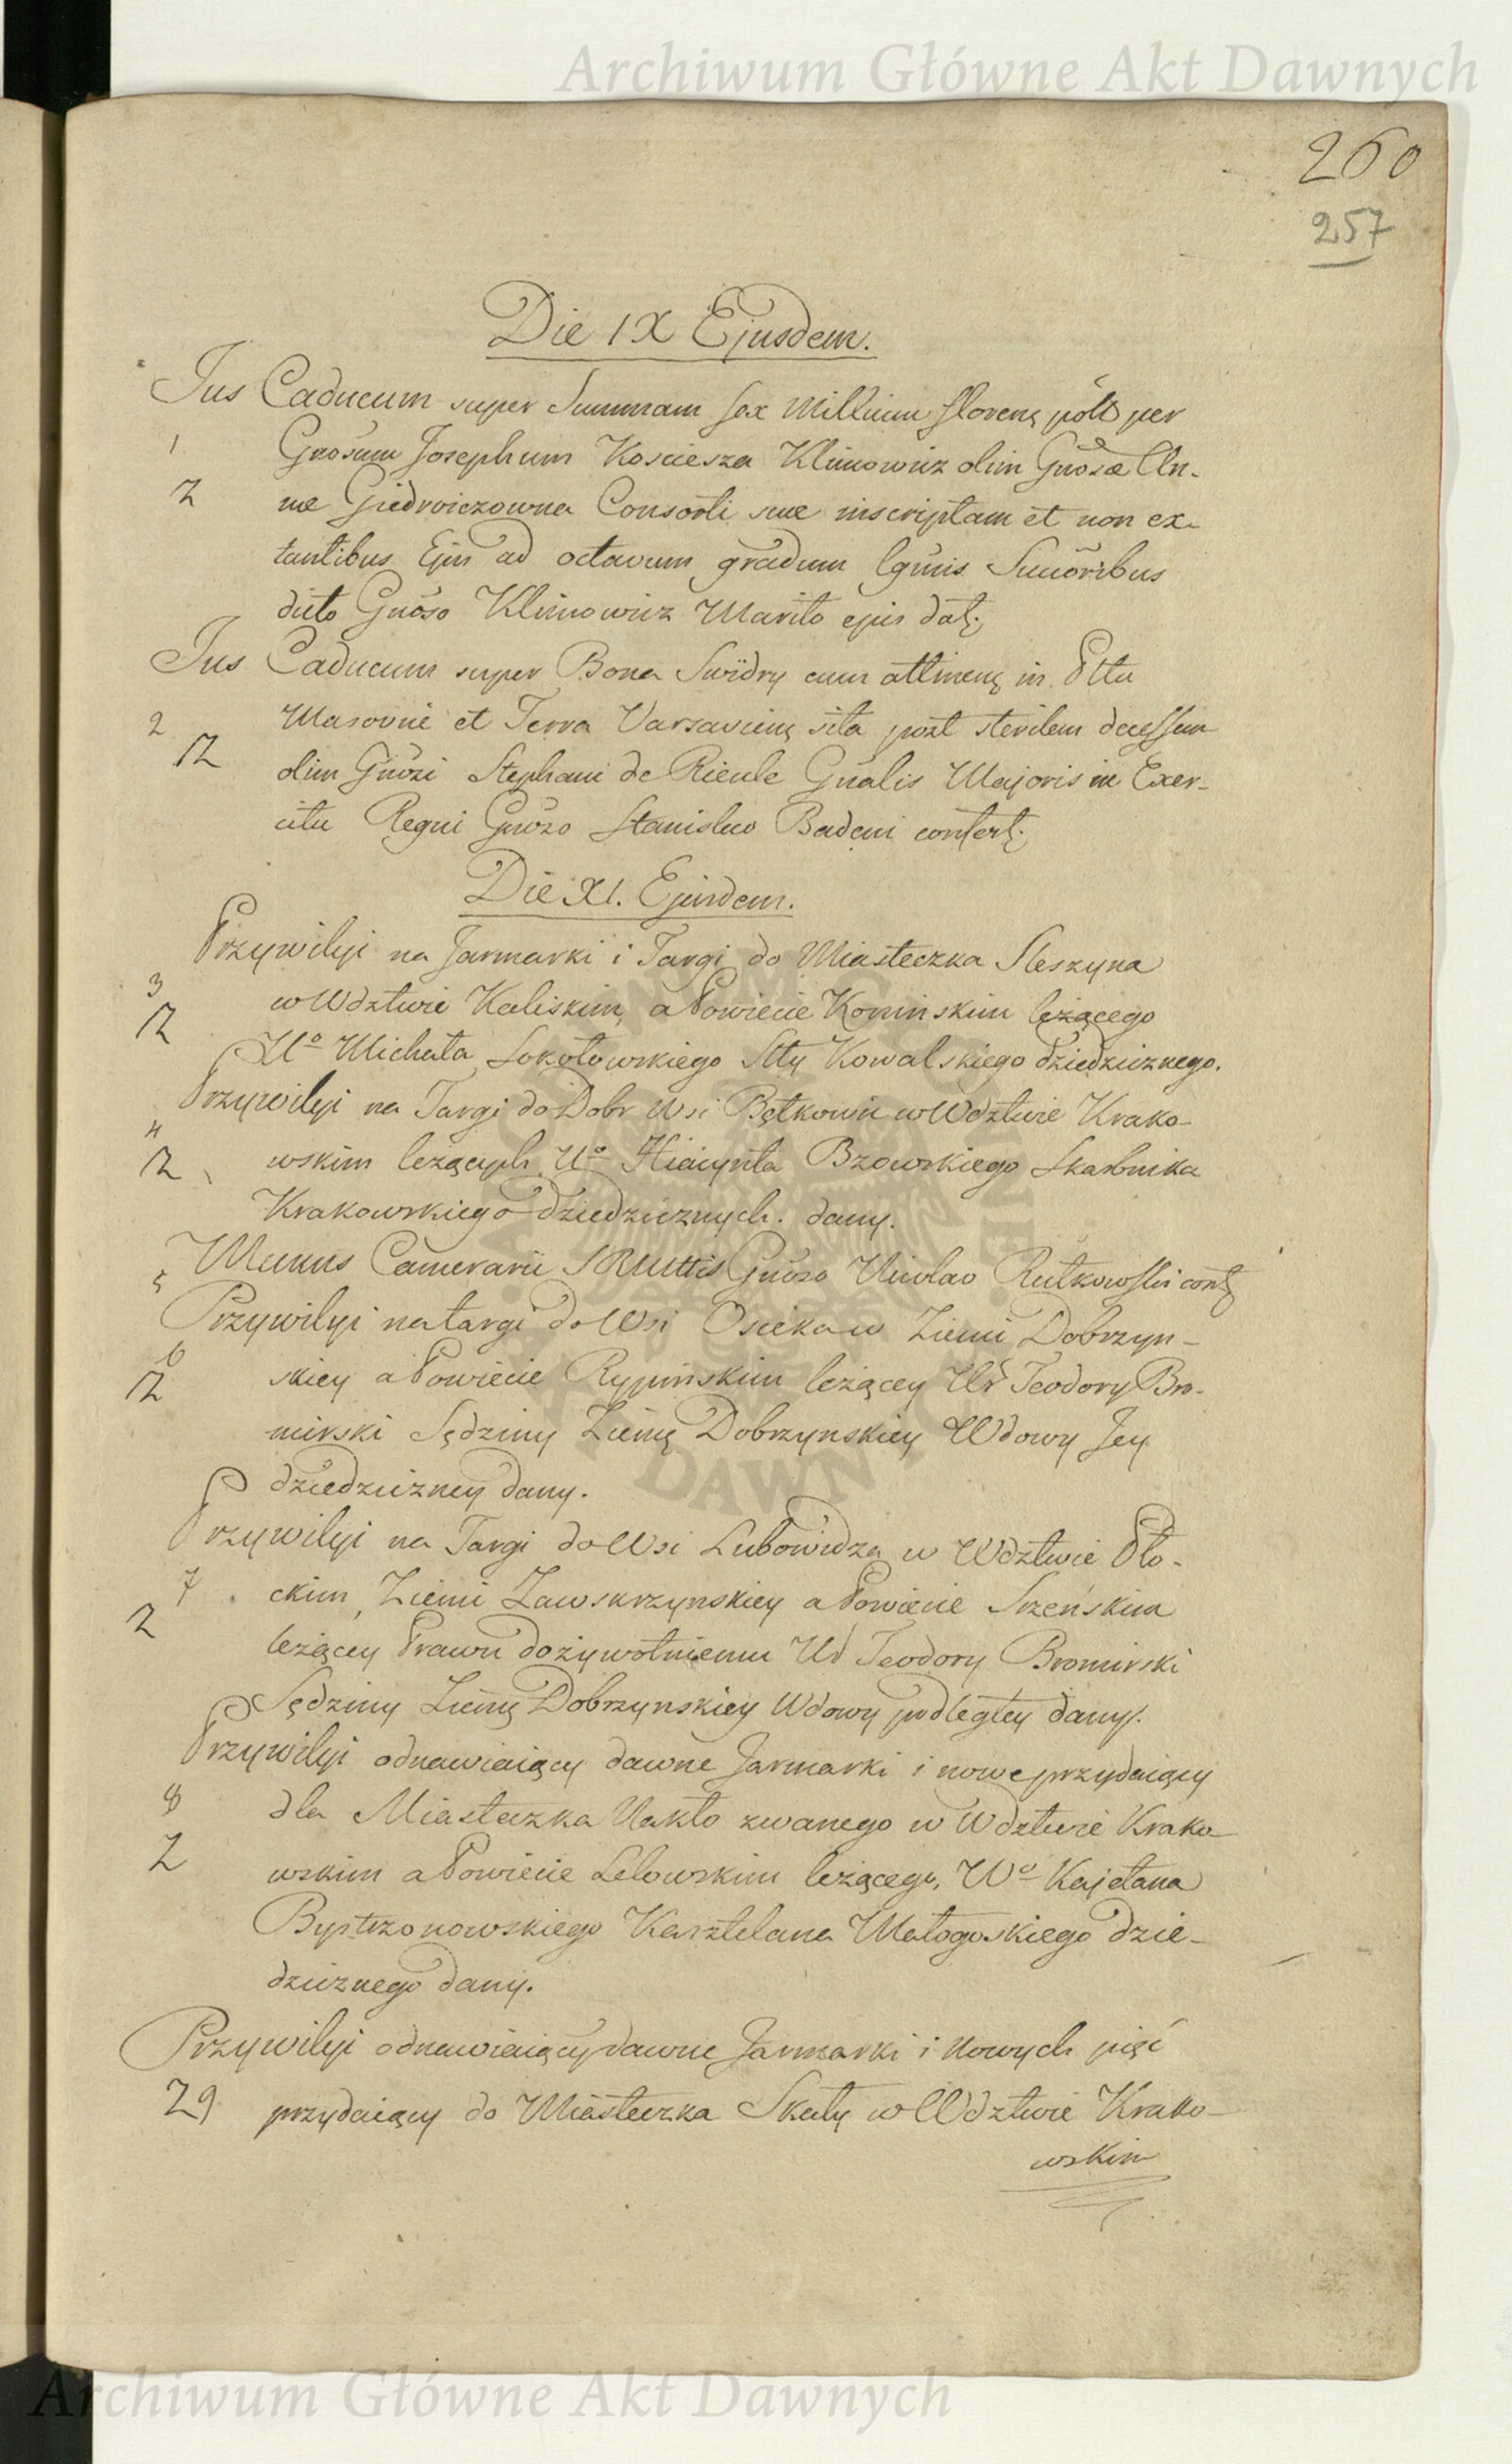 Archiwum Główne Akt Dawnych
260
257
Die IX Ejusdem.
Jus Caducum super Summam sex Millium floreng pólł per
1 Gnosum Josephum Kosciesza Klimowicz olim Gnosæ An-
Z næ Giedroiczowna Consorti suæ inscriptam et non ex-
tantibus Ejus ad octavum gradum lgmis Sucõribus
dicto Gnoso Klimowicz Marito ejus dat;
Jus Caducum super Bona Swidry cum attineng in Pttu
2 Masoviæ et Terra Varsavieng sita post sterilem decessum
12 olim Gnosi Stephani de Rieule Gnalis Majoris in Exer-
citu Regni Gnoso Stanislao Badeni confert;
Die XI. Ejusdem.
Przywilyi na Jarmarki i Targi do Miasteczka Sleszyna
3 w Wdztwie Kaliskim, a Powiecie Koninskim leżącego
12 Uo Michała Sokołowskiego Stty Kowalskiego dziedzicznego.
Przywilyi na Targi do Dobr Wsi Bętkowic w Wdztwie Krako-
4
12 wskim leżących Uo Hiacynta Bzowskiego Skarbnika
Krakowskiego dziedzicznych. dany.
5 Munus Camerarii SRMttis Gnoso Nicolao Rutkowski conf
Przywilyi na targi do Wsi Osieka w Ziemi Dobrzyn-
6
12 skiey a Powiecie Rypinskim leżącey Ur Teodory Bro-
mirski Sędziny Ziemę Dobrzynskiey Wdowy Jey
dziedziczney dany.
Przywilyi na Targi do Wsi Lubowidza w Wdztwie Pło-
7 ckim, Ziemi Zawskrzynskiey a Powiecie Szreńskim
2 leżącey Prawu dożywotniemu Ur Teodory Bromirski
Sędziny Ziemę Dobrzynskiey Wdowy podległey dany.
Przywilyi odnawiaiący dawne Jarmarki i nowe przydaiący
8 dla Miasteczka Nakło zwanego w Wdztwie Krako-
Z wskim a Powiecie Lelowskim leżącego, Wo Kajetana
Bystrzonowskiego Kasztelana Małogoskiego dzie-
dzicznego dany.
Przywilyi odnawiaiący dawne Jarmarki i nowych pięć
Z9 przydaiący do Miasteczka Skały w Wdztwie Krako-
wskim
Archiwum Główne Akt Dawnych